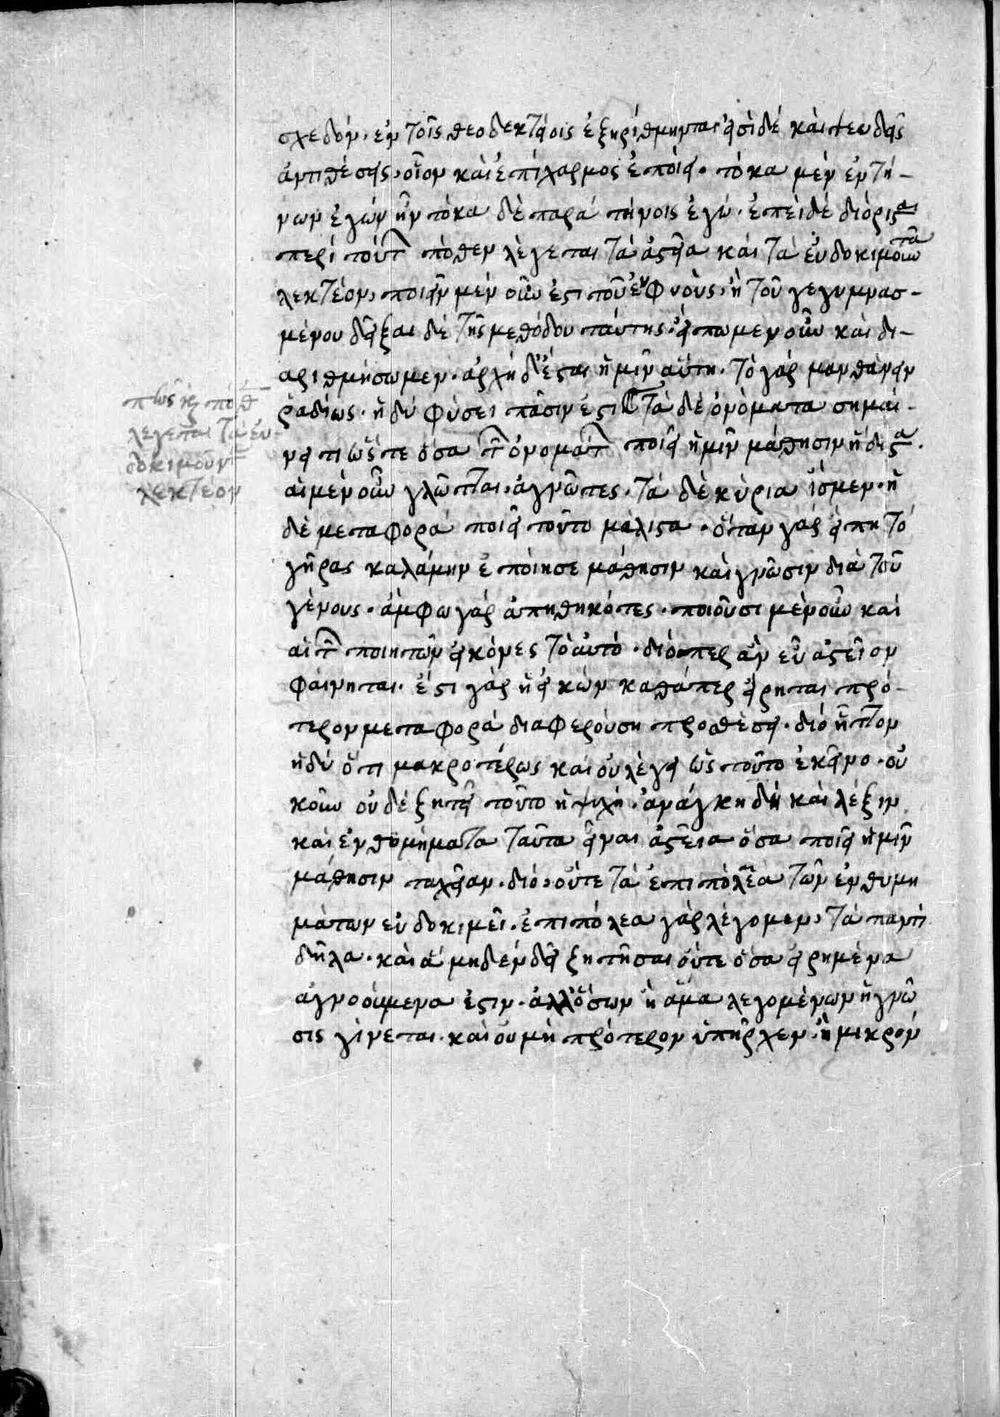 σχεδόν. ἐν τοῖς θεοδεκτείοις ἐξηρίθμηνται εἰσὶ δέ καὶ ψευδεῖς
ἀντιθέσεις. οἷον καὶ ἐπίχαρμος ἐποίει. τόκα μὲν ἐν τή-
νων ἐγὼν ἦν τόκα δὲ παρά τήνοις ἐγώ. ἐπεὶ δέ διώρισται
περὶ τούτων πόθεν λέγεται τὰ ἀστεῖα καὶ τὰ εὐδοκιμοῦντα
λεκτέον, ποιεῖν μὲν οὖν ἐστι τοῦ εὐφυοὺς, ἢ τοῦ γεγυμνασ-
μένου δεῖξαι δέ τῆς μεθόδου ταύτης. εἴπωμεν οὖν καὶ δι-
αριθμήσωμεν. ἀρχὴ δ' ἔσται ἡμῖν αὕτη. τὸ γὰρ μανθάνειν
ῥαδίως. ἡδύ φύσει πᾶσιν ἐστί τὰ δέ ὀνόματα σημαί-
νει τι ὥστε ὅσα τῶν ὀνομάτων ποιεῖ ἡμῖν μάθησιν ἥδιστα.
αἱ μὲν οὖν γλῶτται. ἀγνῶτες. τὰ δὲ κύρια ἴσμεν. ἡ
δὲ μεταφορά ποιεῖ τοῦτο μάλιστα. ὅταν γὰρ εἴπη τὸ
γῆρας καλάμην ἐποίησε μάθησιν καὶ γνῶσιν διὰ τοῦ
γένους. ἄμφω γὰρ ἀπηθηκότες. ποιοῦσι μὲν οὖν καὶ
αἱ τῶν ποιητῶν εἰκόνες τὸ αὐτό. διόπερ ἂν εὖ ἀστεῖον
φαίνηται. ἔστι γὰρ ἡ εἰκών καθάπερ εἴρηται πρό-
τερον μεταφορὰ διαφερούση προθέσει. διό ἧττον
ἡδύ ὅτι μακροτέρως καὶ οὐ λέγει ὡς τοῦτο ἐκεῖνο. οὐ
κοῦν οὐδέ ζητεῖ τοῦτο ἡ ψυχή. ἀνάγκη δὴ καὶ λέξιν
καὶ ἐνθυμήματα ταῦτα εἶναι ἀστεῖα ὅσα ποιεῖ ἡμῖν
μάθησιν ταχεῖαν. διό, οὔτε τὰ ἐπιπόλεα τῶν ἐνθυμη
μάτων εὐδοκιμεῖ. ἐπιπόλεα γὰρ λέγομεν, τὰ παντὶ
δῆλα. καὶ ἅ μηδὲν δεῖ ζητῆσαι οὔτε ὅσα εἰρημένα
ἀγνοούμενα ἐστίν. ἀλλ' ὅσων ἢ ἅμα λεγομένων ἡ γνῶ
σις γίνεται. καὶ οὐ μὴ πρότερον ὑπῆρχεν. ἢ μικρόν
πῶς καὶ πόθεν
λέγεται τὰ εὐ-
δοκιμοῦντα
λεκτέον